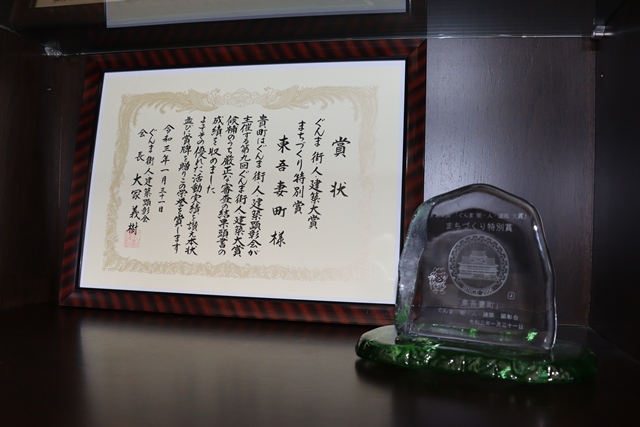 賞状
ぐんま街・人・建築大賞
まちづくり特別賞
東吾妻町様
貴町はぐんま街・人・建築顕彰会が
主催する第九回ぐんま街・人・建築大賞
候補のうち厳正な審査の結果頭書の
成績を収めました
よってその優れた活動実績を讃え本状
並びに賞牌を贈りこの栄誉を賞します
令和三年一月三一日
ぐんま街・人・建築顕彰会
会長 大塚義樹
まちづくり特別賞
東吾妻町
ぐんま 街・人・建築 顕彰会